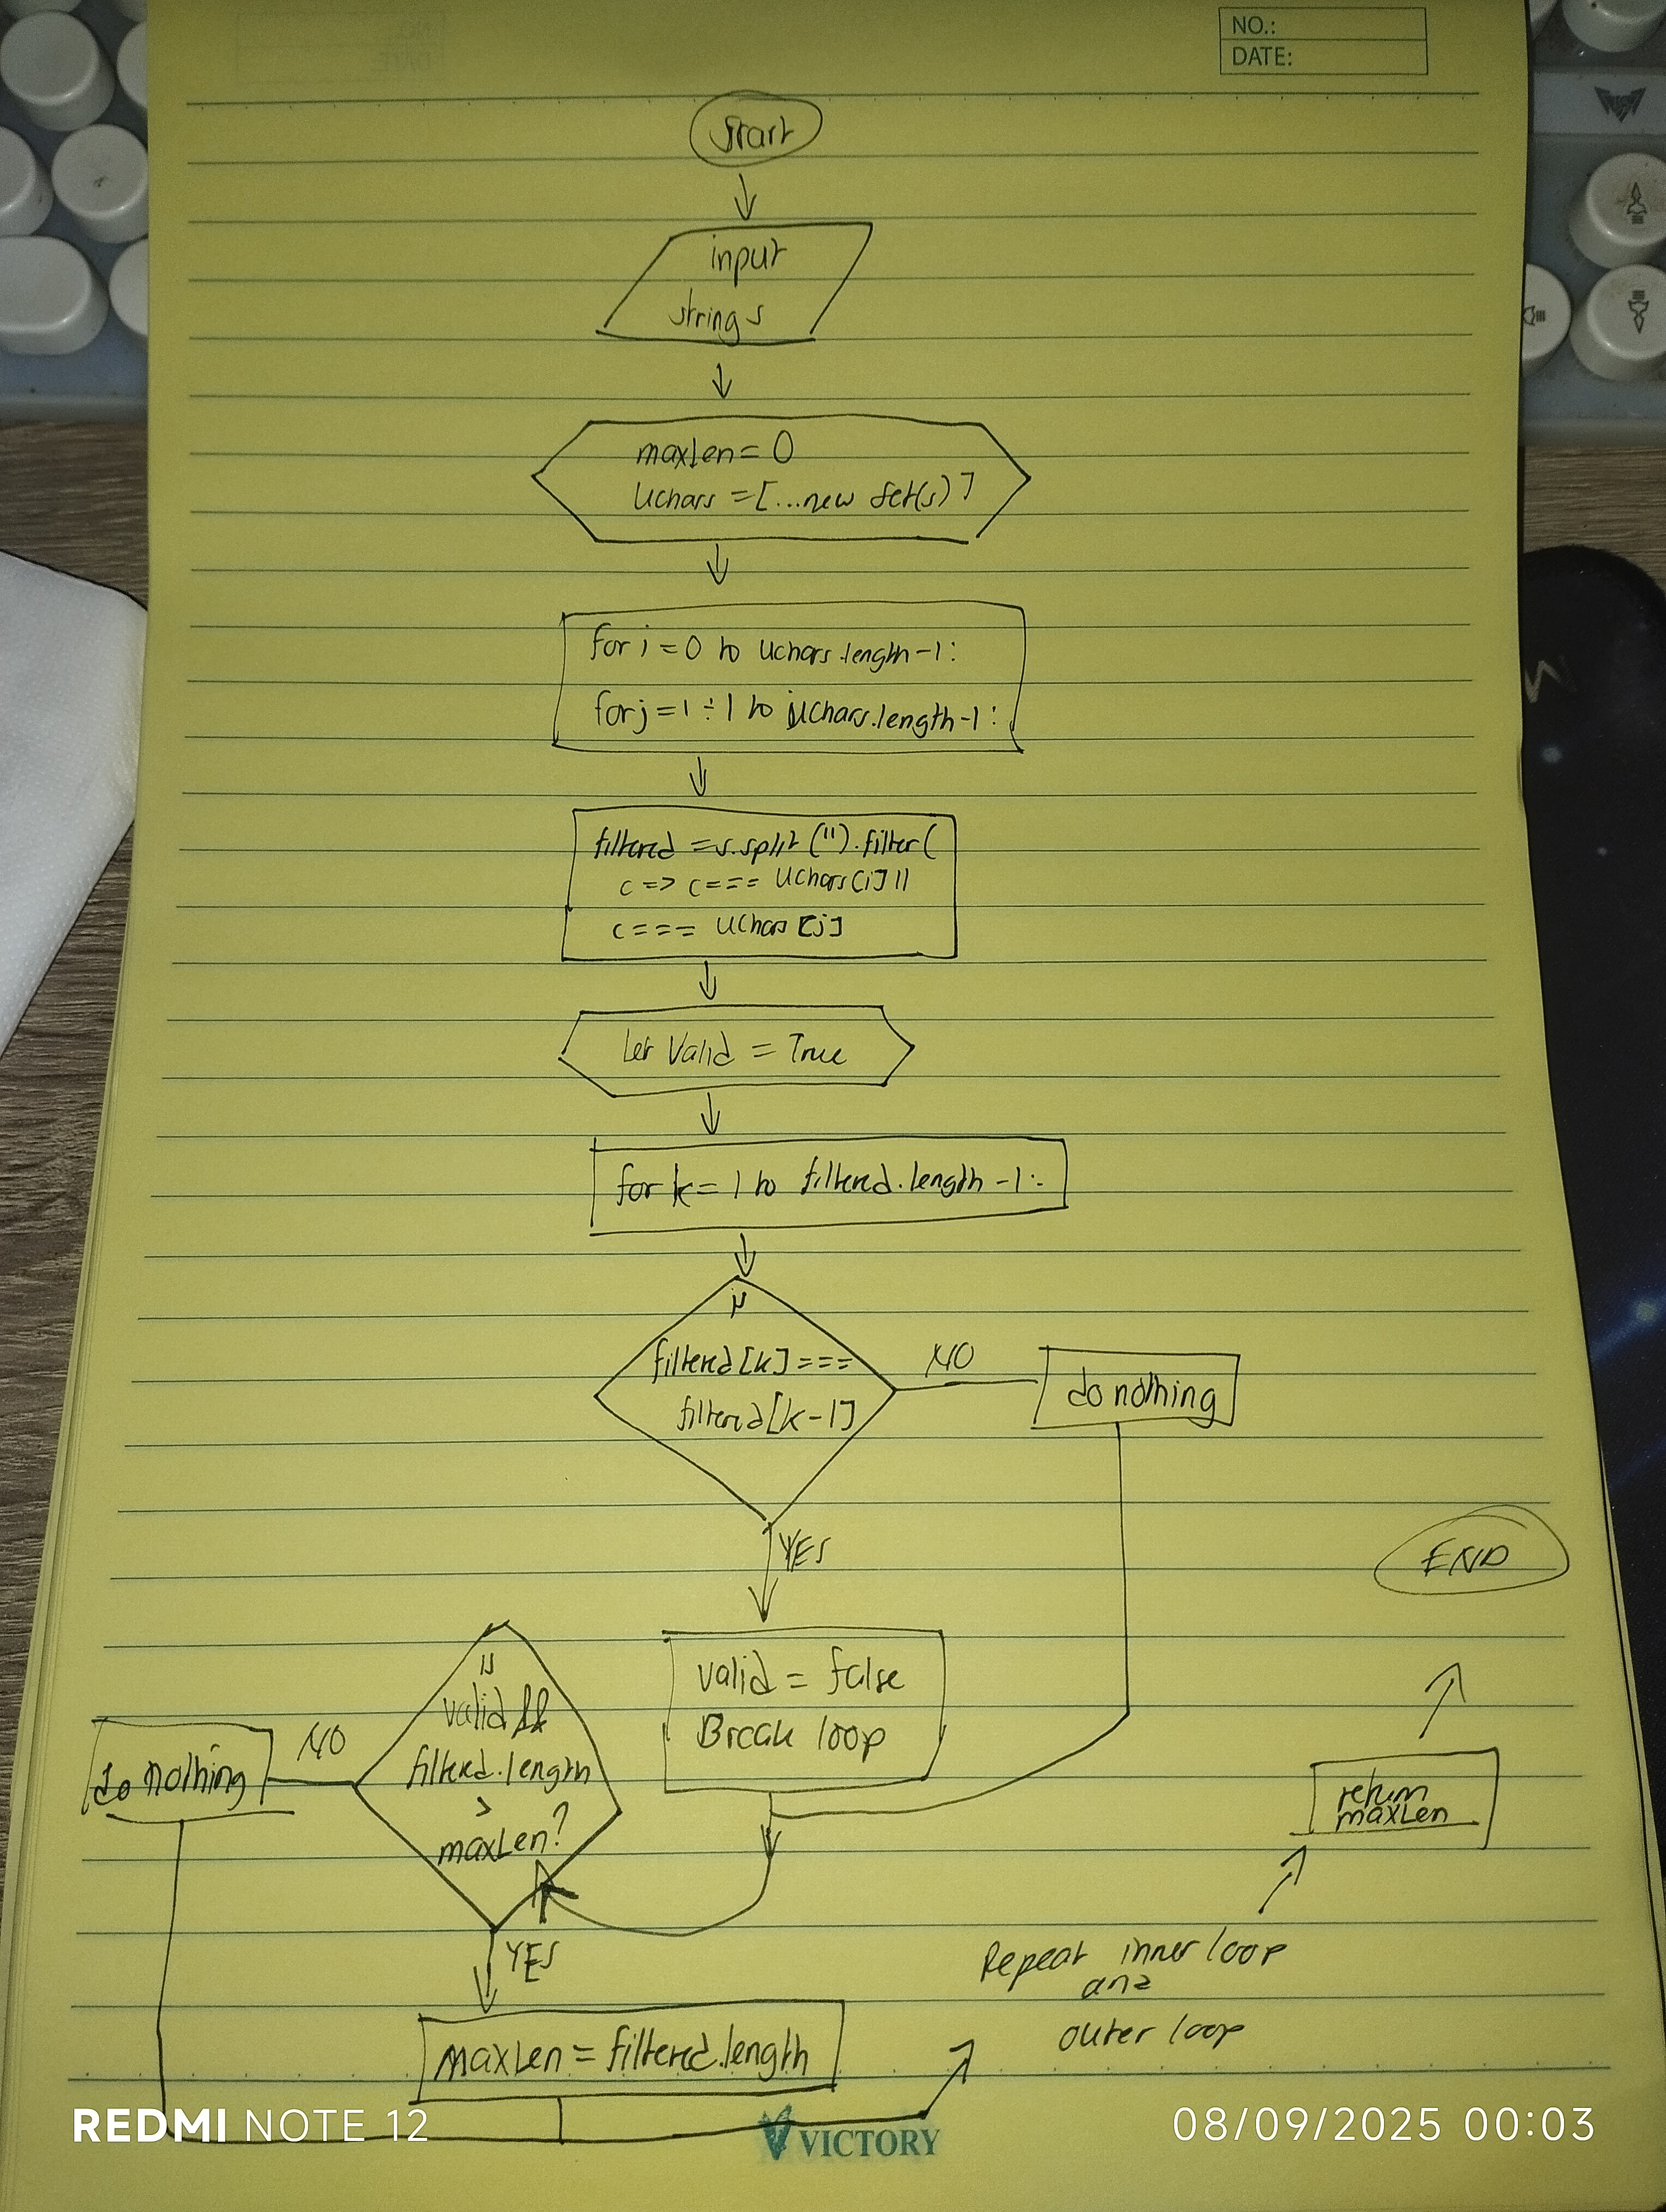 NO.:
DATE:
Start
input
string s
maxLen = 0
Uchars = [...new Set(s)]
for i = 0 to uchars.length-1:
for j = i ÷ 1 to uchars.length-1:
filtered = s.split('').filter(
c => c === Uchars[i] ||
c === Uchars[j]
Let Valid = True
for k = 1 to filtered.length -1:
is
filtered[k] ===
filtered[k-1]
NO
do nothing
YES
valid = false
Break loop
is
valid &&
filtered.length
>
maxLen?
NO
do nothing
YES
maxLen = filtered.length
Repeat inner loop
and
outer loop
return
maxLen
END
REDMI NOTE 12
VICTORY
08/09/2025 00:03